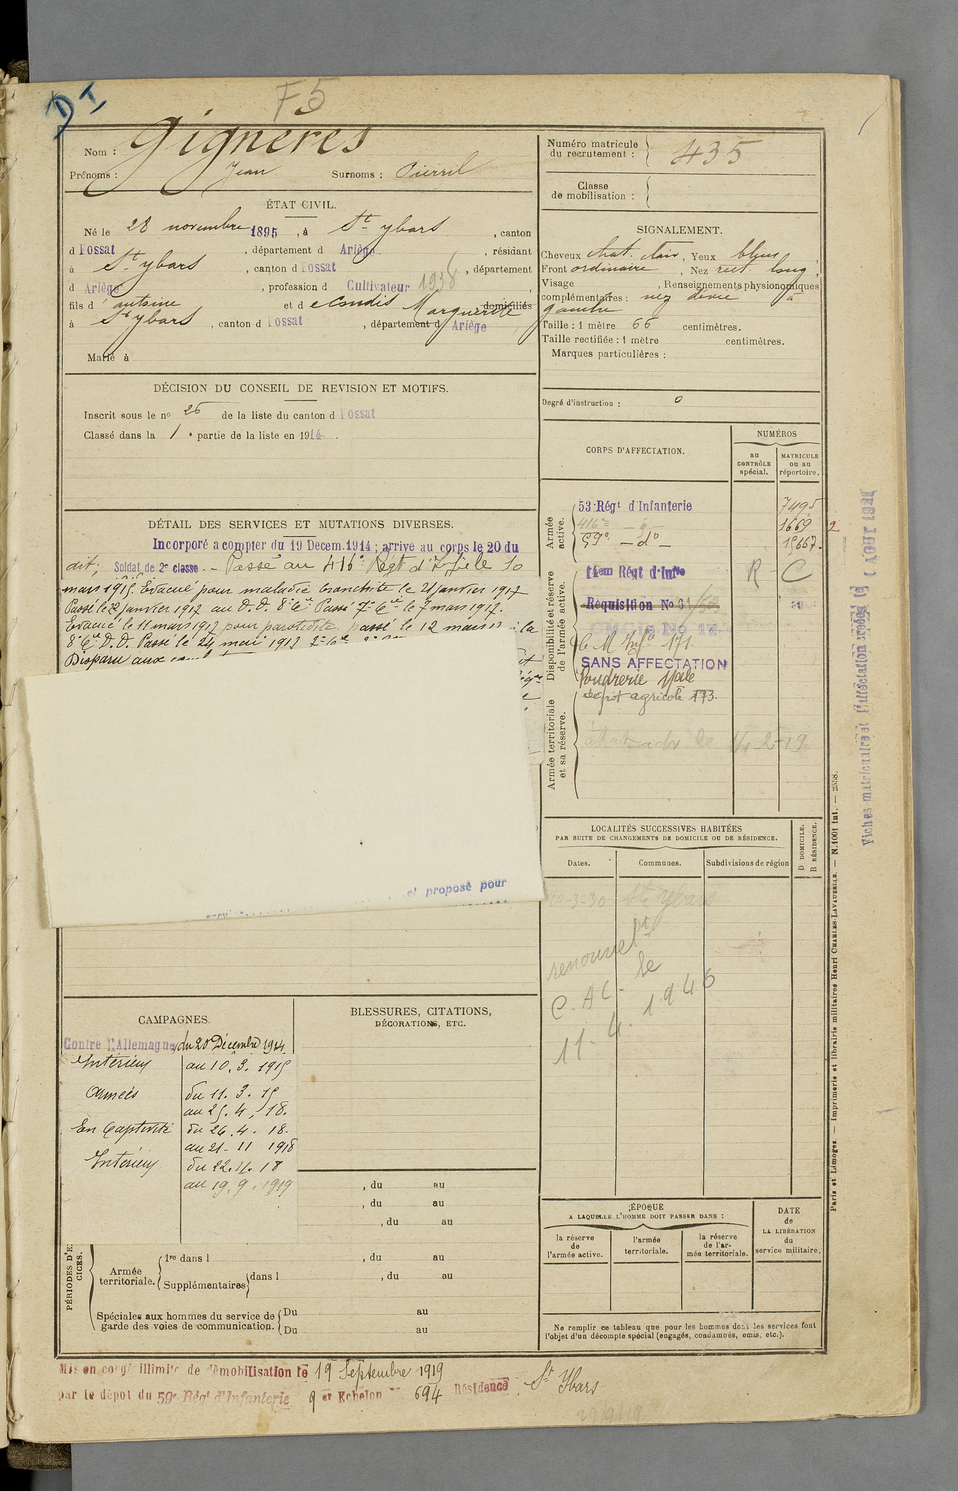 F5
Nom : Gignères
Prénoms : Jean Surnoms : Pierril
ÉTAT CIVIL.
Né le 28 novembre 1895, à St ybars, canton
d Fossat, département d Ariège, résidant
à St ybars, canton d Fossat, département
d Ariège, profession d Cultivateur 1938
fils d'antoine et d Marguerite domiciliés
à St ybars, canton d Fossat, département d Ariège
Marié à
DÉCISION DU CONSEIL DE REVISION ET MOTIFS.
Inscrit sous le no 26 de la liste du canton d Fossat
Classé dans la 1e partie de la liste en 1914.
DÉTAIL DES SERVICES ET MUTATIONS DIVERSES.
Incorporé a compter du 19 Decem. 1914; arrive au corps le 20 du
dit; Soldat de 2e classe. - Passé au 416e Régt d'Infie le 10
mars 1915. Evacué pour maladie bronchite le 21 janvier 1917
Passé le janvier 1917 au D.D. 8e Cie Passé 7e Cie le 7 mars 1917.
Evacué le 11 mars 1917 pour passé le 12 mars à la
8e Cie D.D. Passé le 24 mai 1917
Disparu aux
et proposé pour
CAMPAGNES.
Contre l'Allemagne, du 20 Décembre 1914
Intérieur au 10. 3. 1915
Armées du 11. 3. 15
au 25. 4. 18.
En Captivité du 26. 4. 18.
au 21- 11 1918
Intérieur du 22. 11. 18
au 19. 9. 1919
BLESSURES, CITATIONS,
DÉCORATIONS, ETC.
, du au
, du au
, du au
PÉRIODES D'EXERCICES.
Armée territoriale.
1re dans l , du au
Supplémentaires dans l , du au
Spéciales aux hommes du service de
garde des voies de communication.
Du au
Du au
Mis en congé illimité de démobilisation le 19 Septembre 1919
par le dépot du 59e Rég d'Infanterie 9 et Echelon no 694 Résidence St Ybars
Numéro matricule
du recrutement : 435
Classe
de mobilisation :
SIGNALEMENT.
Cheveux chat. clair, Yeux bleus,
Front ordinaire, Nez rect long,
Visage , Renseignements physionomiques
complémentaires : nez dévié à
gauche
Taille : 1 mètre 66 centimètres.
Taille rectifiée : 1 mètre centimètres.
Marques particulières :
Degré d'instruction : 0
CORPS D'AFFECTATION.
NUMÉROS
au
CONTRÔLE
spécial.
MATRICULE
ou au
répertoire.
Armée
active.
53 Régt d'Infanterie 7495
416e - do - 1669 2
59e - do - 15667
Disponibilité et réserve
de l'armée active.
14em Régt d'Infie R - C
Réquisition No
SANS AFFECTATION
Poudrerie
Dépot agricole 173.
Armée territoriale
et sa réserve.
LOCALITÉS SUCCESSIVES HABITÉES
PAR SUITE DE CHANGEMENTS DE DOMICILE OU DE RÉSIDENCE.
Dates. Communes. Subdivisions de région
D DOMICILE.
R RÉSIDENCE.
-3-30 St Ybars
C.A.C. le
11. 4. 1946
ÉPOQUE
A LAQUELLE L'HOMME DOIT PASSER DANS :
la réserve
de
l'armée active.
l'armée
territoriale.
la réserve
de l'ar-
mée territoriale.
DATE
de
LA LIBÉRATION
du
service militaire.
Ne remplir ce tableau que pour les hommes dont les services font
l'objet d'un décompte spécial (engagés, condamnés, omis, etc.).
Paris et Limoges. — Imprimerie et librairie militaires Henri CHARLES-LAVAUZELLE. — N. 1001 int. — 2338.